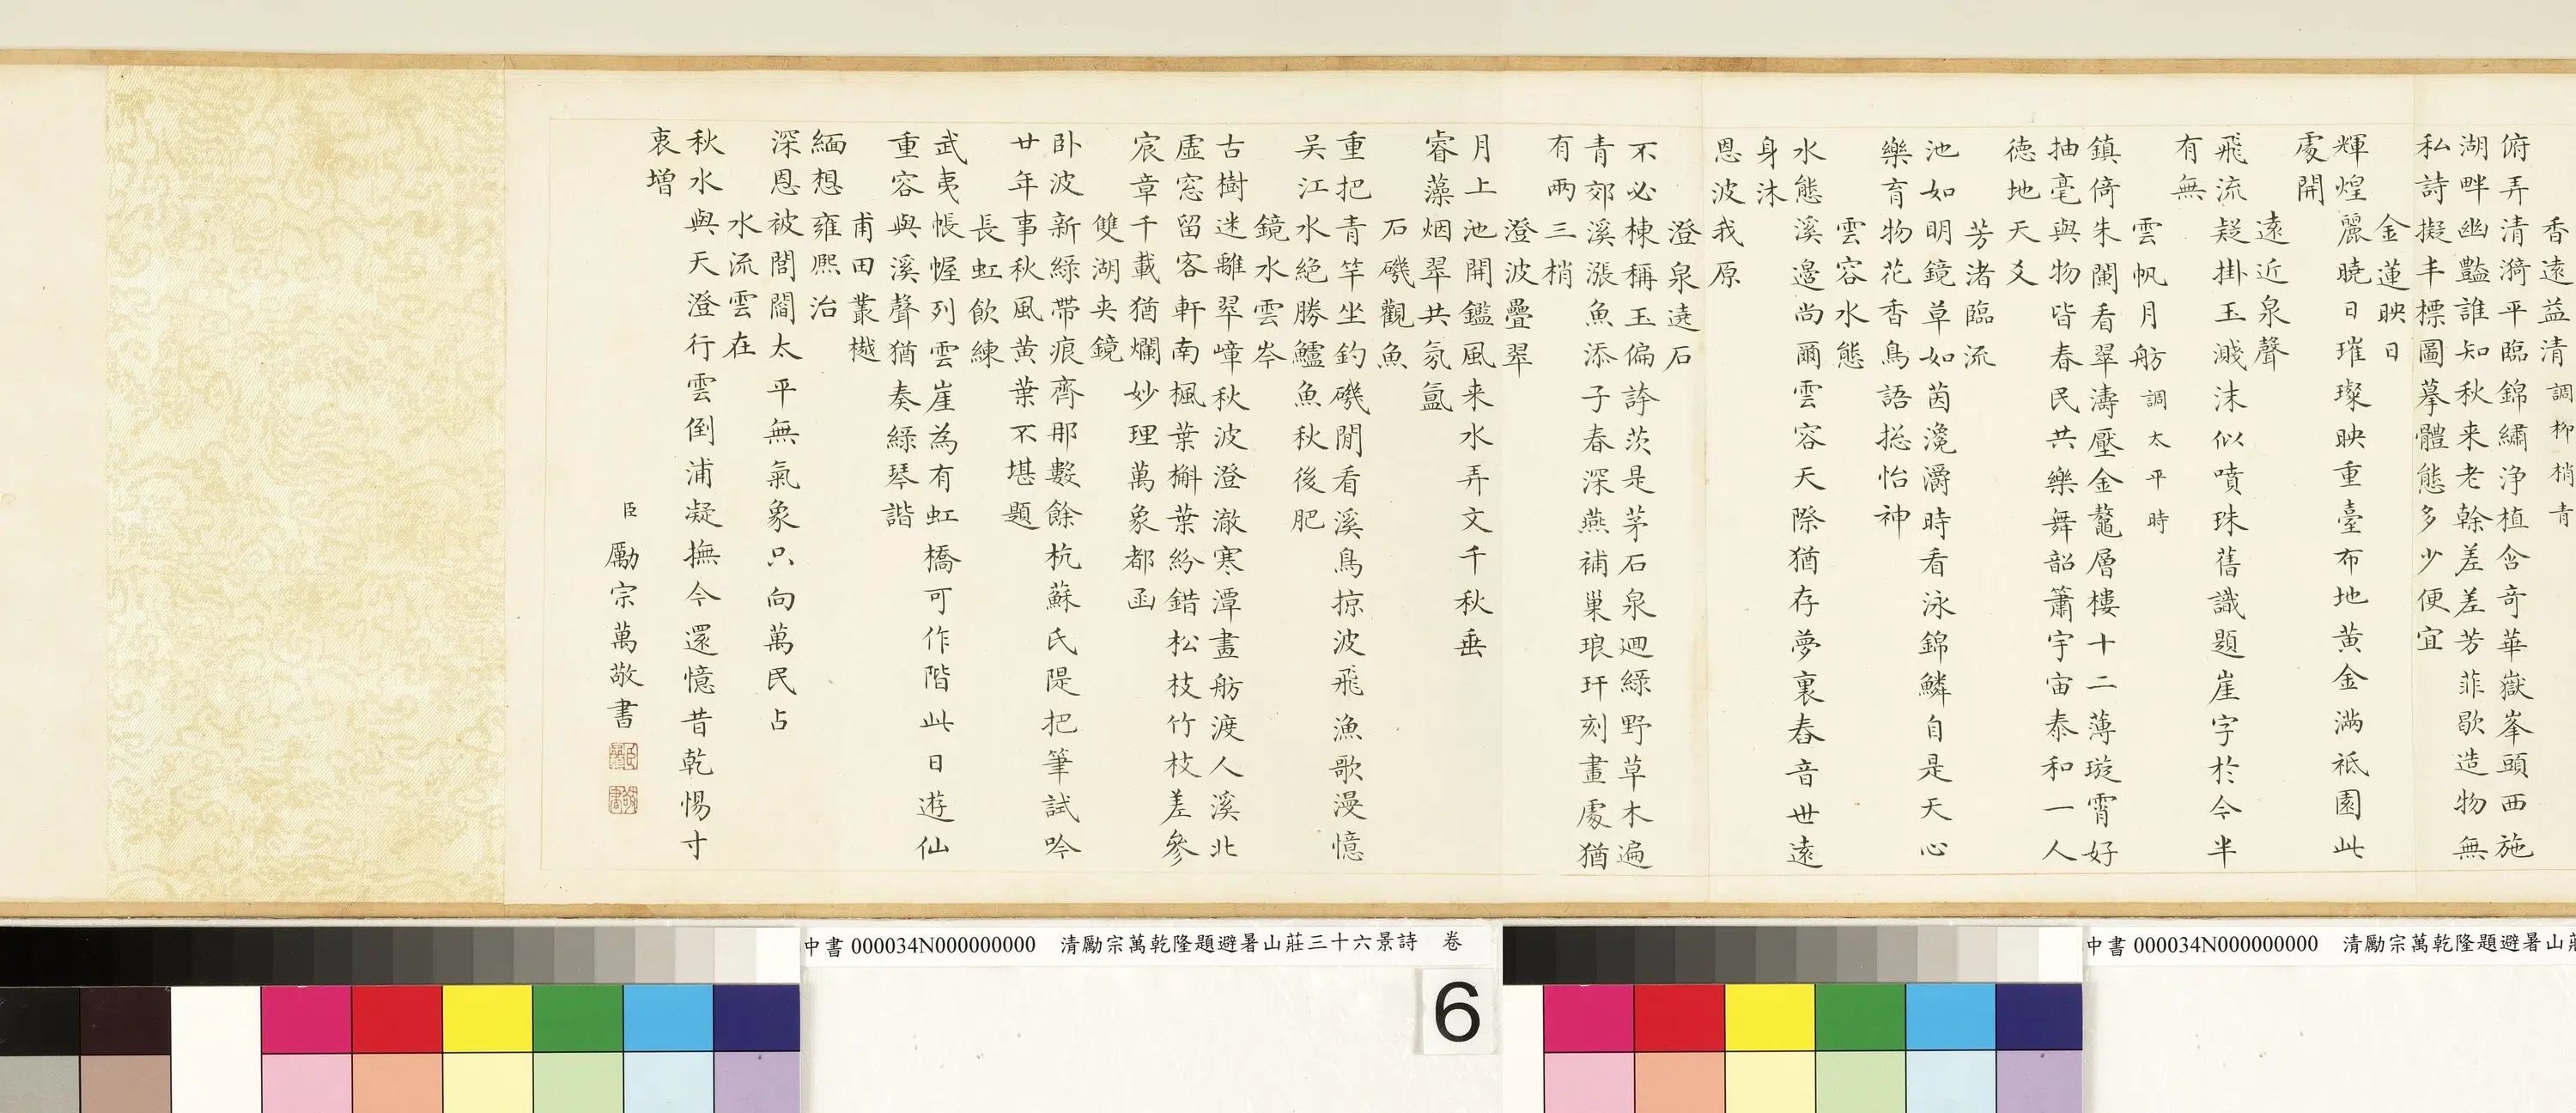 香遠益清 調柳梢青
俯弄清漪平臨錦繡浄植含奇華嶽峯頭西施
湖畔幽豔誰知秋来老榦差差芳菲歇造物無
私詩擬丰標圖摹體態多少便宜
金蓮映日
輝煌麗曉日璀璨映重臺布地黄金滿祗園此
處開
遠近泉聲
飛流疑掛玉濺沫似噴珠舊識題崖字於今半
有無
雲帆月舫 調太平時
鎮倚朱闌看翠濤壓金鼇層樓十二薄璇霄好
抽毫與物皆春民共樂舞韶簫宇宙泰和一人
徳地天爻
芳渚臨流
池如明鏡草如茵瀺灂時看泳錦鱗自是天心
樂育物花香鳥語捴怡神
雲容水態
水態溪邉尚爾雲容天際猶存夢裏舂音世遠
身沐
恩波我原
澄泉遶石
不必棟稱玉偏誇茨是茅石泉迴緑野草木遍
青郊溪漲魚添子春深燕補巢琅玕刻畫處猶
有两三梢
澄波疊翠
月上池開鑑風来水弄文千秋垂
睿藻烟翠共氛氳
石磯觀魚
重把青竿坐釣磯閒看溪鳥掠波飛漁歌漫憶
吴江水絶勝鱸魚秋後肥
鏡水雲岑
古樹迷離翠嶂秋波澄澈寒潭畫舫渡人溪北
虚窓留客軒南楓葉槲葉紛錯松枝竹枝差參
宸章千載猶爛妙理萬象都函
雙湖夹鏡
卧波新緑帶痕齊那數餘杭蘇氏隄把筆試吟
廿年事秋風黄葉不堪題
長虹飲練
武夷帳幄列雲崖為有虹橋可作階此日遊仙
重容與溪聲猶奏緑琴諧
甫田叢樾
緬想雍熈治
深恩被閭閻太平無氣象只向萬民占
水流雲在
秋水與天澄行雲倒浦凝撫今還憶昔乾惕寸
衷增
臣勵宗萬敬書
中書 000034N000000000 清勵宗萬乾隆題避暑山莊三十六景詩 卷
6
中書 000034N000000000 清勵宗萬乾隆題避暑山莊